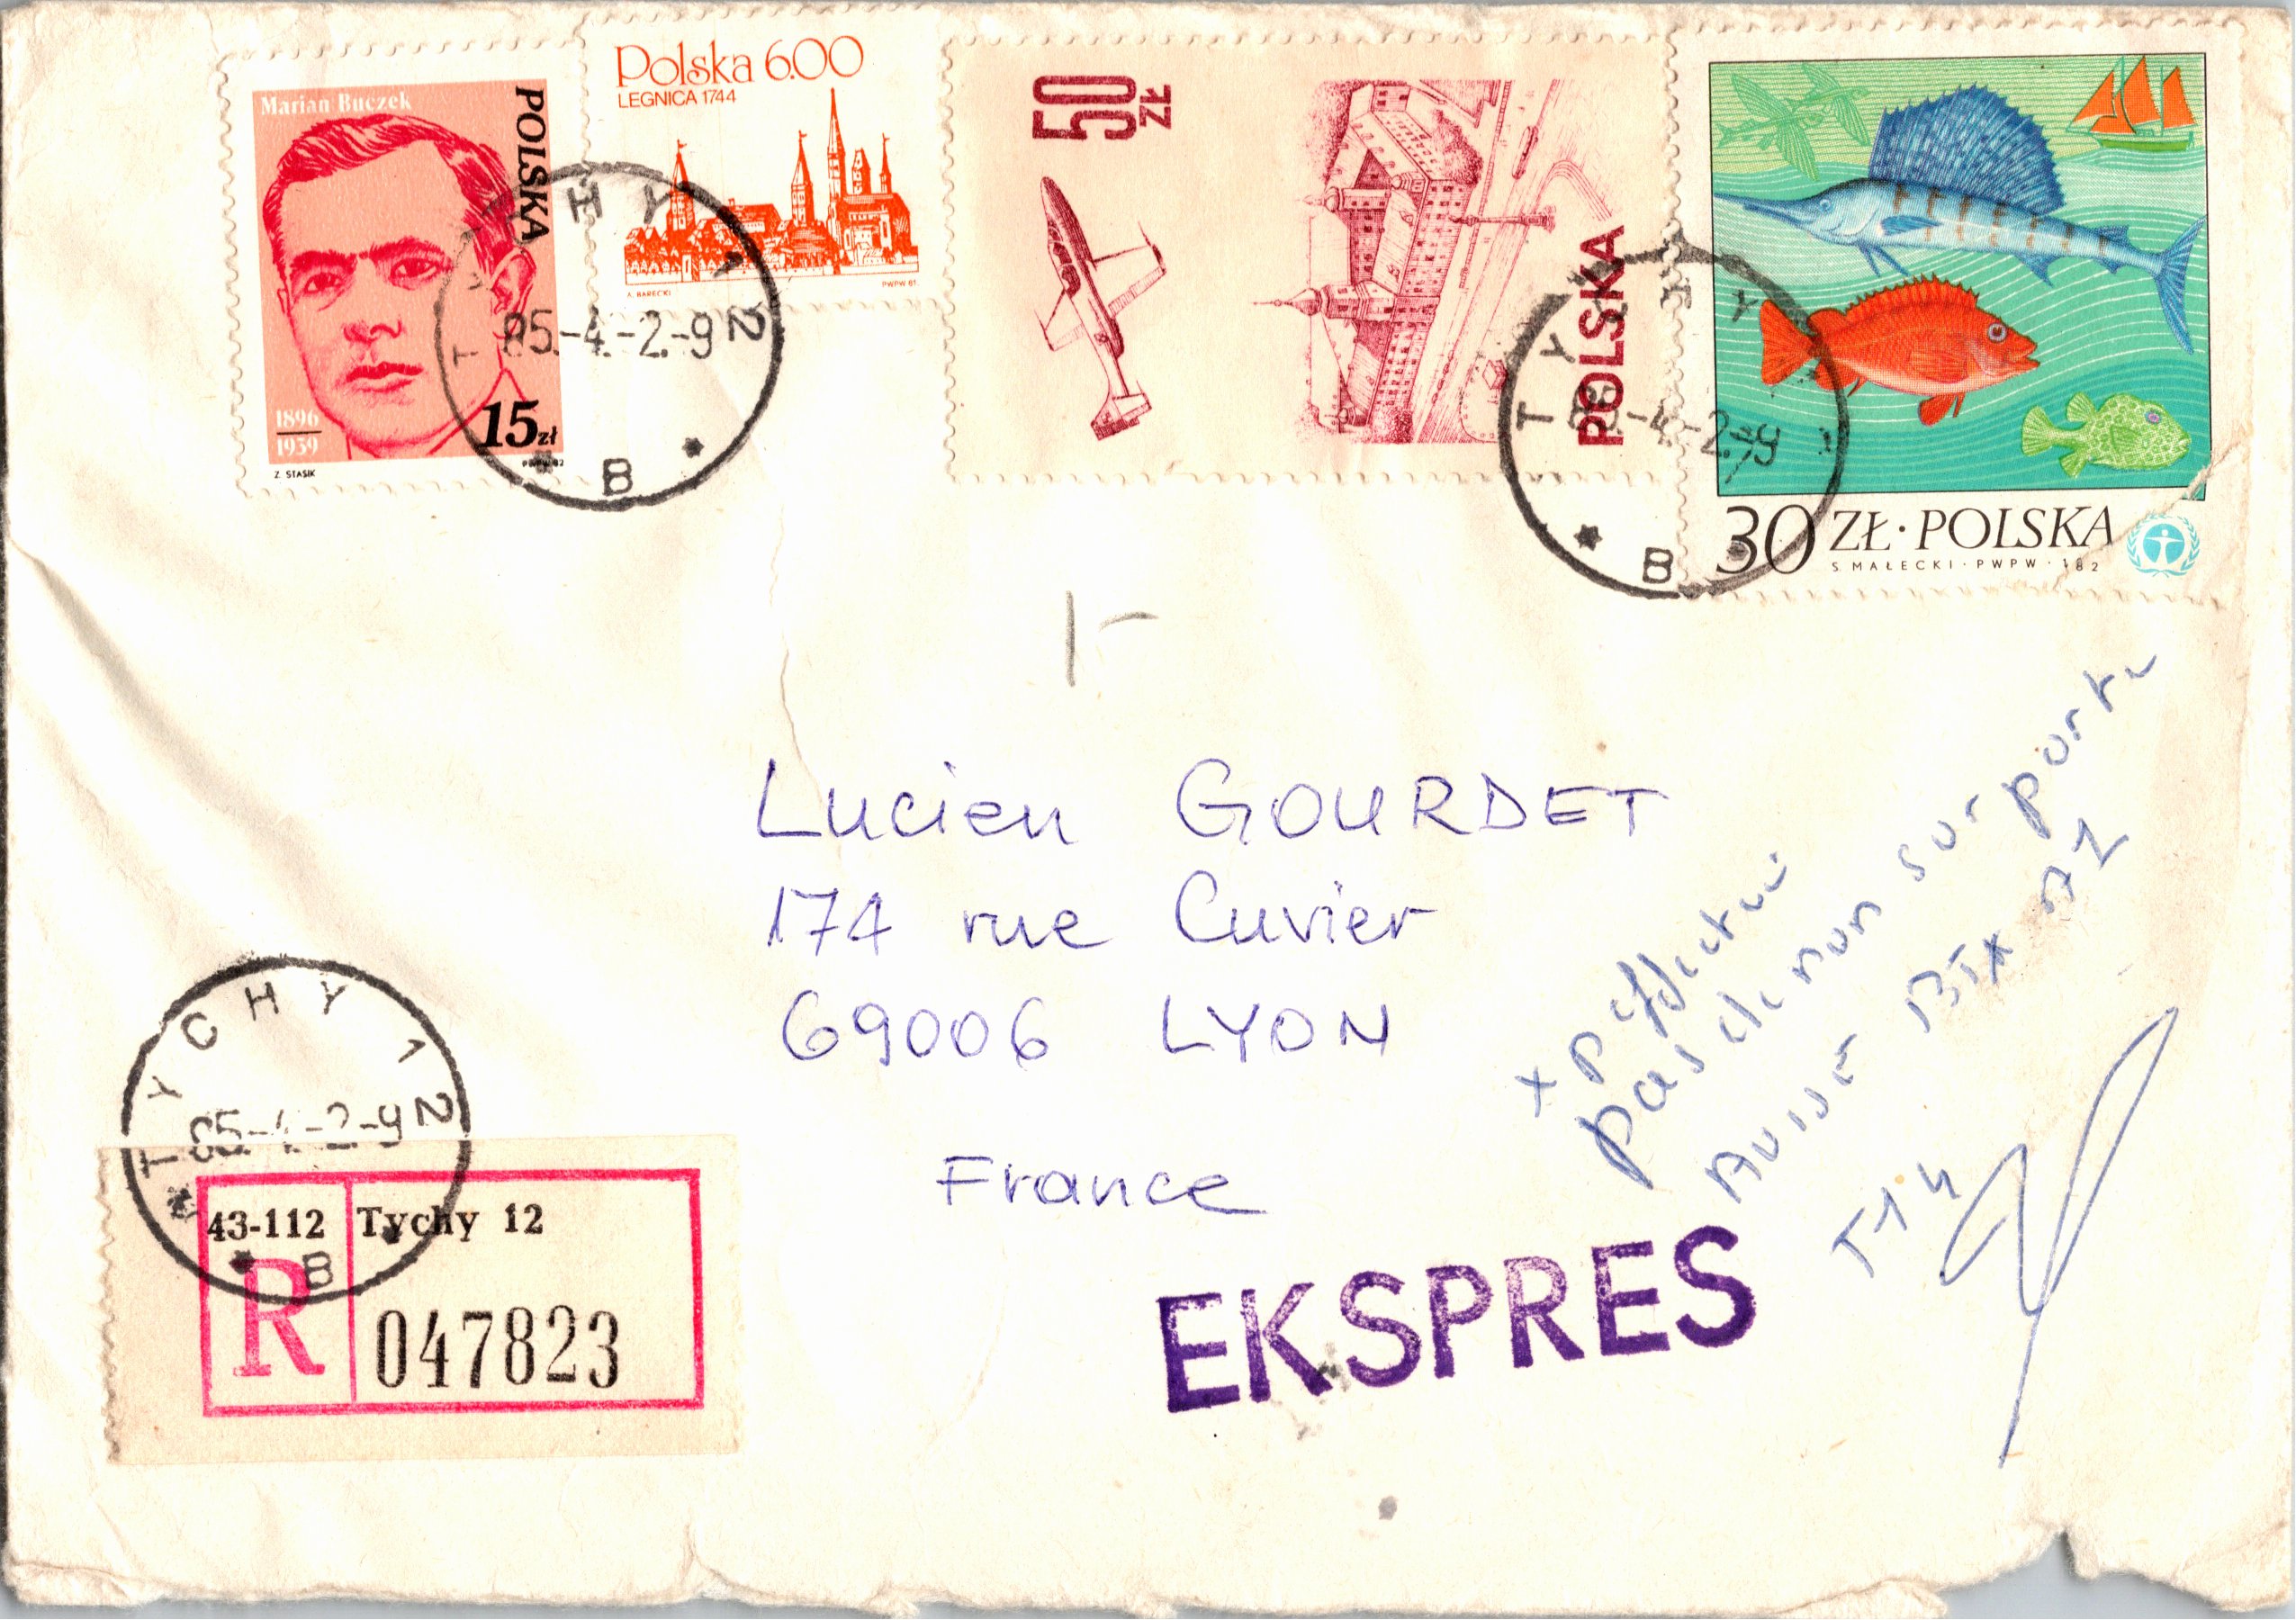 Marian Buczek
POLSKA
1896
1939
15 zł
Z. STASIK
PWPW 82
Polska 6.00
LEGNICA 1744
A. BARECKI
PWPW 81
50 ZŁ
POLSKA
30 ZŁ · POLSKA
S. MAŁECKI · PWPW · 182
TYCHY 12
85.-4.-2.-9
* B *
TYCHY
-4.-2.-9
* B
Lucien GOURDET
174 rue Cuvier
69006 LYON
France
x
pas de nom sur porte
TYCHY 12
85.-4.-2.-9
* B *
43-112 Tychy 12
R 047823
EKSPRES